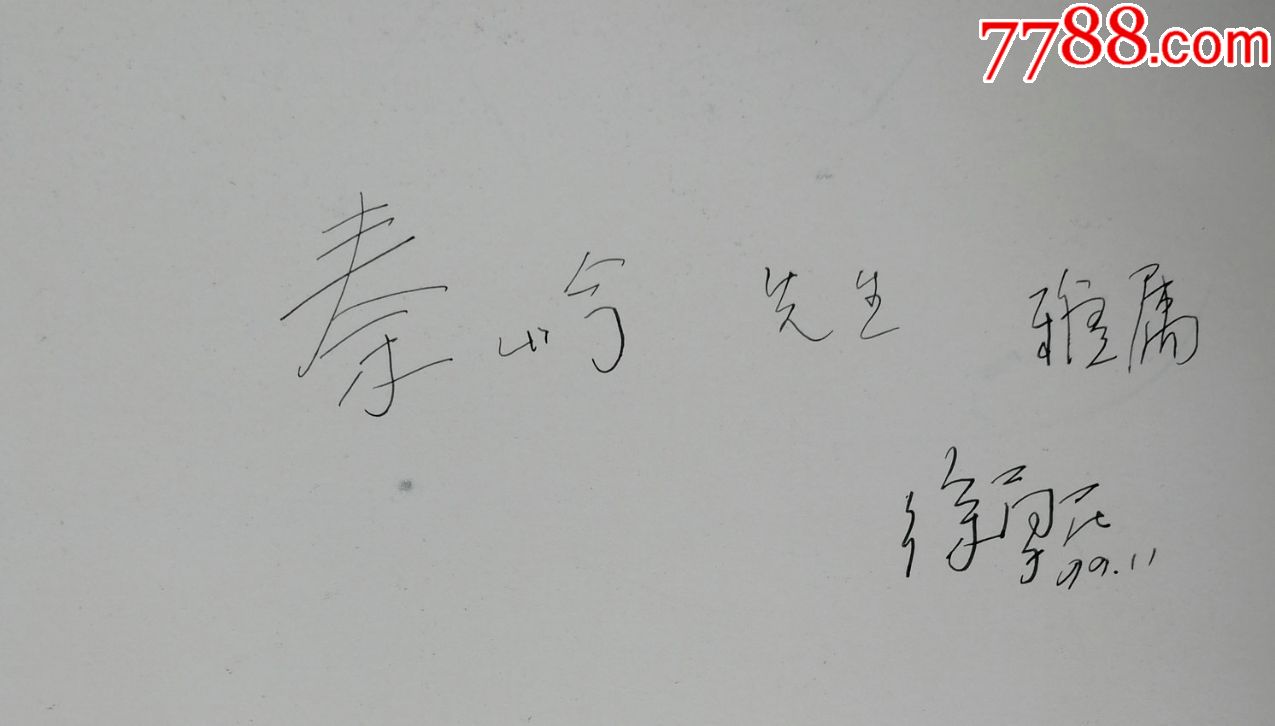 7788.com
秦岭 先生 雅属
徐
99.11